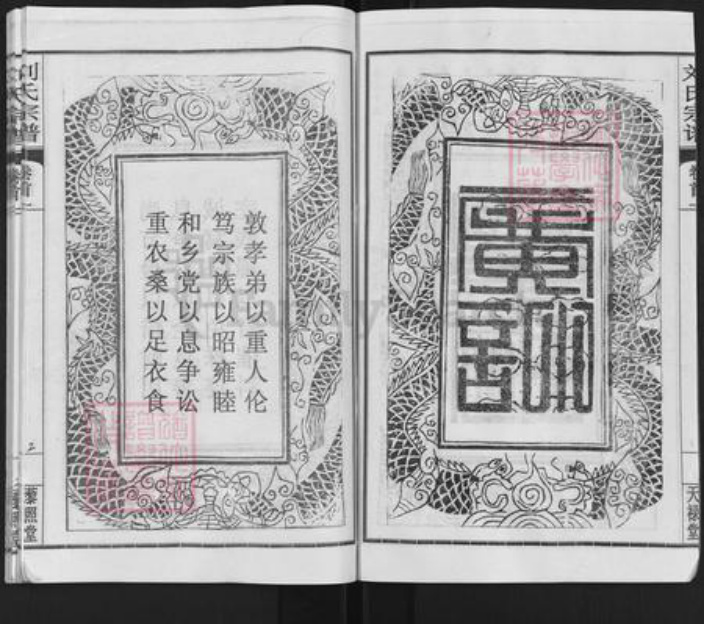 刘氏宗谱
卷首
天禄堂
黄
训
敦孝弟以重人伦
笃宗族以昭雍睦
和乡党以息争讼
重农桑以足衣食
刘氏宗谱
卷首
三
藜照堂